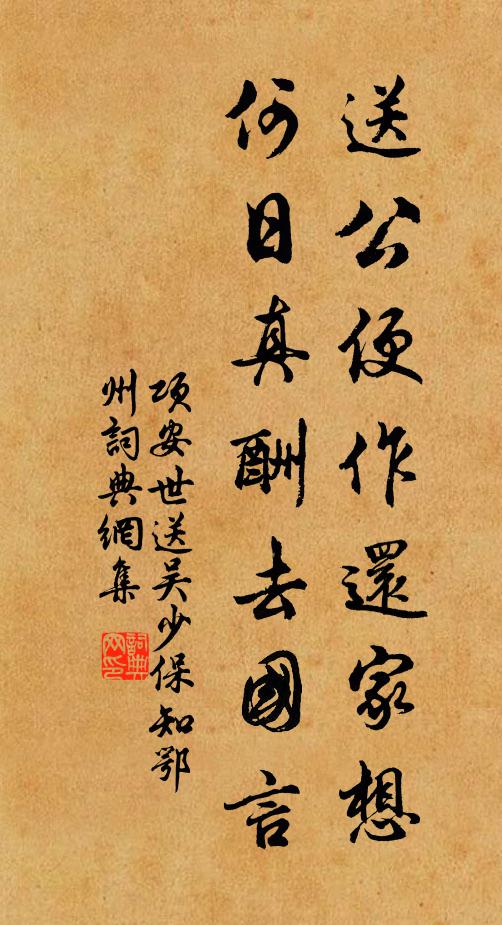 送公便作還家想
何日真酬去國言
項安世送吴少保知鄂
州詞典網集
詞典网印